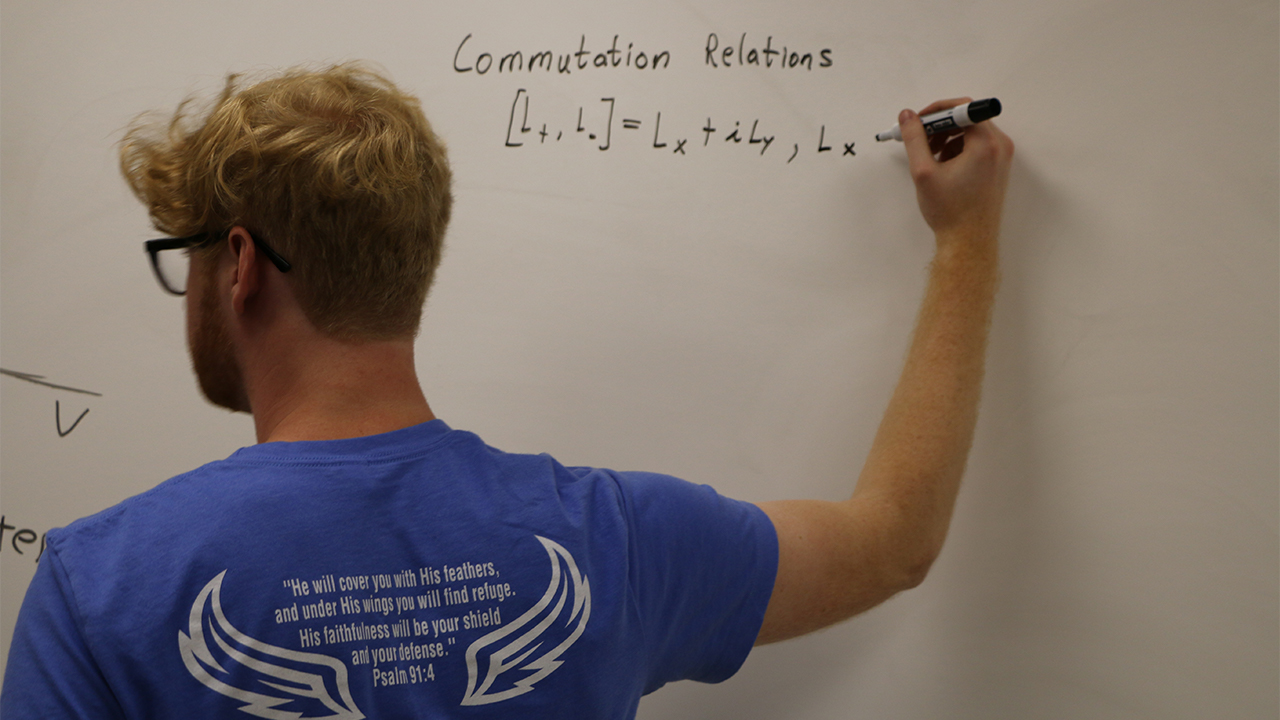 Commutation Relations
[L+, L-] = Lx + iLy, Lx
V
"He will cover you with His feathers,
and under His wings you will find refuge.
His faithfulness will be your shield
and your defense."
Psalm 91:4